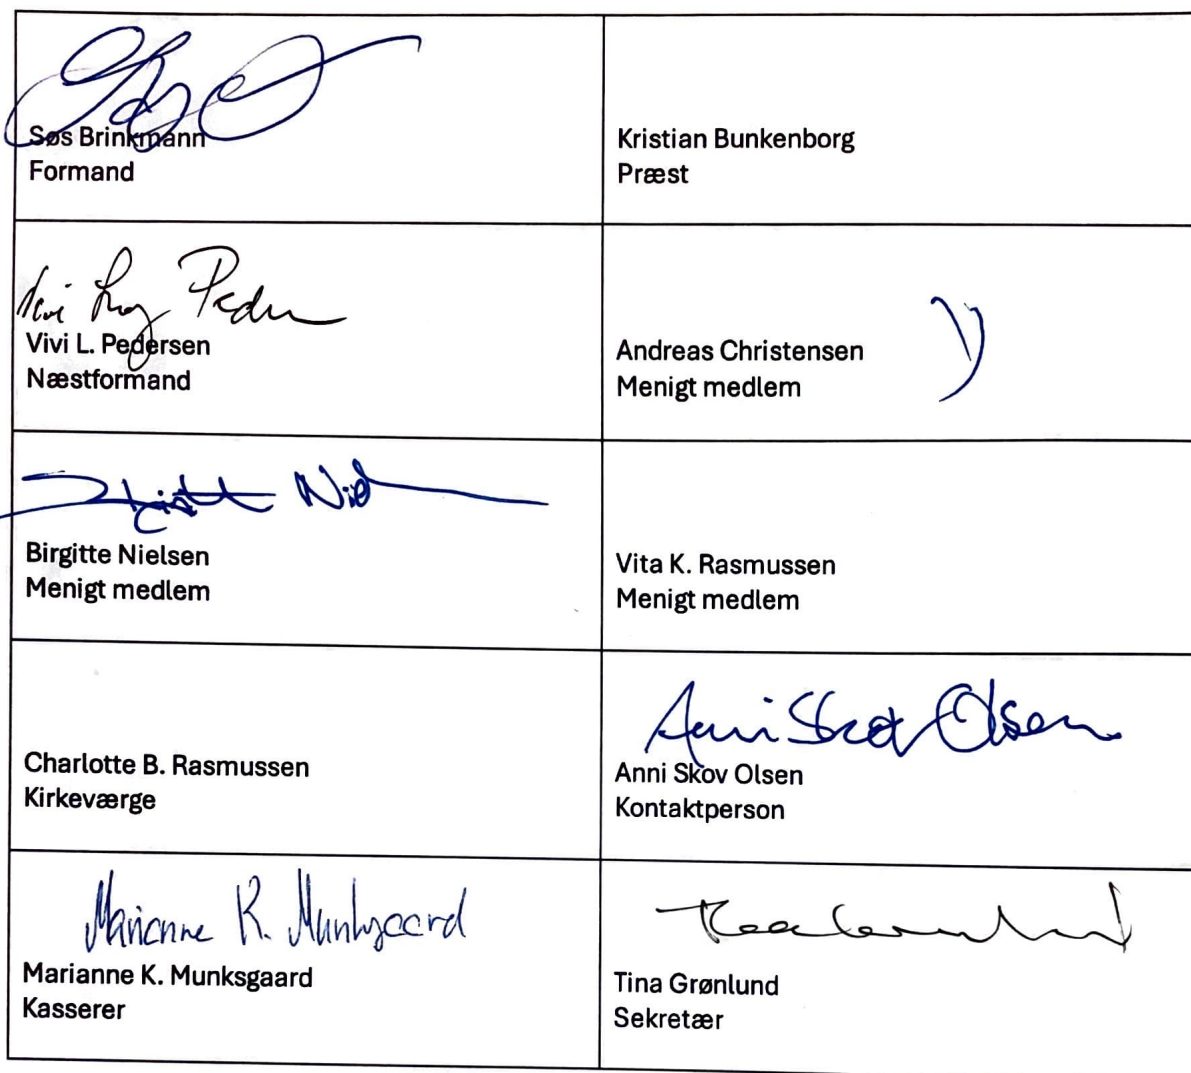 Søs Brinkmann
Formand
Kristian Bunkenborg
Præst
Vivi L. Pedersen
Næstformand
Andreas Christensen
Menigt medlem
Birgitte Nielsen
Menigt medlem
Vita K. Rasmussen
Menigt medlem
Charlotte B. Rasmussen
Kirkeværge
Anni Skov Olsen
Anni Skov Olsen
Kontaktperson
Marianne K. Munksgaard
Marianne K. Munksgaard
Kasserer
Tina Grønlund
Sekretær